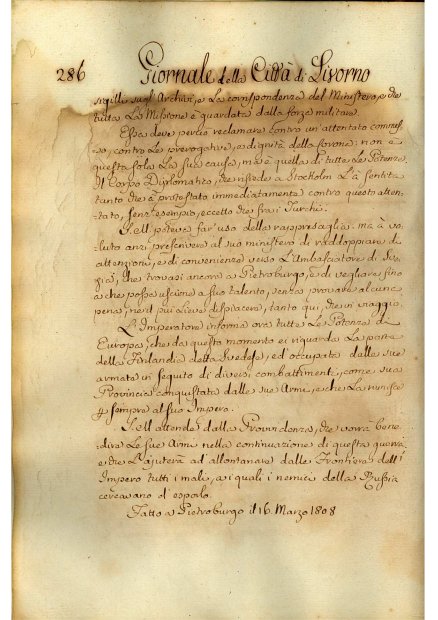 286 Giornale della Città di Livorno
sigilli sugl'Archivi, e La corrispondenza del Ministero, e che
tutta La Missione è guardata dalla forza militare.
Essa deve perciò reclamare contro un'attentato commes-
so, contro Le prerogative, e dignità della Corona: non è
questa sola La sua causa, ma è quella di tutte Le Potenze.
Il Corpo Diplomatico, che risiede a Stockolm L'à sentita
tanto che à protestato immediatamente contro questo atten-
tato, senz'esempio, eccetto che fra i Turchi.
S.M. poteva far'uso della rappresaglia: ma à vo-
luto anzi prescrivere al suo ministero di raddoppiare di
attenzioni, e di convenienze verso L'Ambasciatore di Sve-
zia, che trovasi ancora a Pietroburgo, e di vegliare fino
a che possa uscirne a suo talento, senza provare alcune
pene, ne il più Lieve dispiacere, tanto qui, che in viaggio.
L'Imperatore informa ora tutte Le Potenze di
Europa, che da questo momento ei riguarda La parte
della Finlandia detta Svedese, ed occupata dalla sua
armata in seguito di diversi combattimenti, come una
Provincia conquistata dalle sue Armi, e che La riunisce
p sempre al suo Impero.
S.M. attende dalla Provvidenza, che vorrà bene-
dire Le sue Armi nella continuazione di questa guerra
e che L'ajuterà ad allontanare dalle Frontiere dell'
Impero tutti i mali, a i quali i nemici della Russia
cercavano d'esporlo.
Fatto a Pietroburgo il 16. Marzo 1808